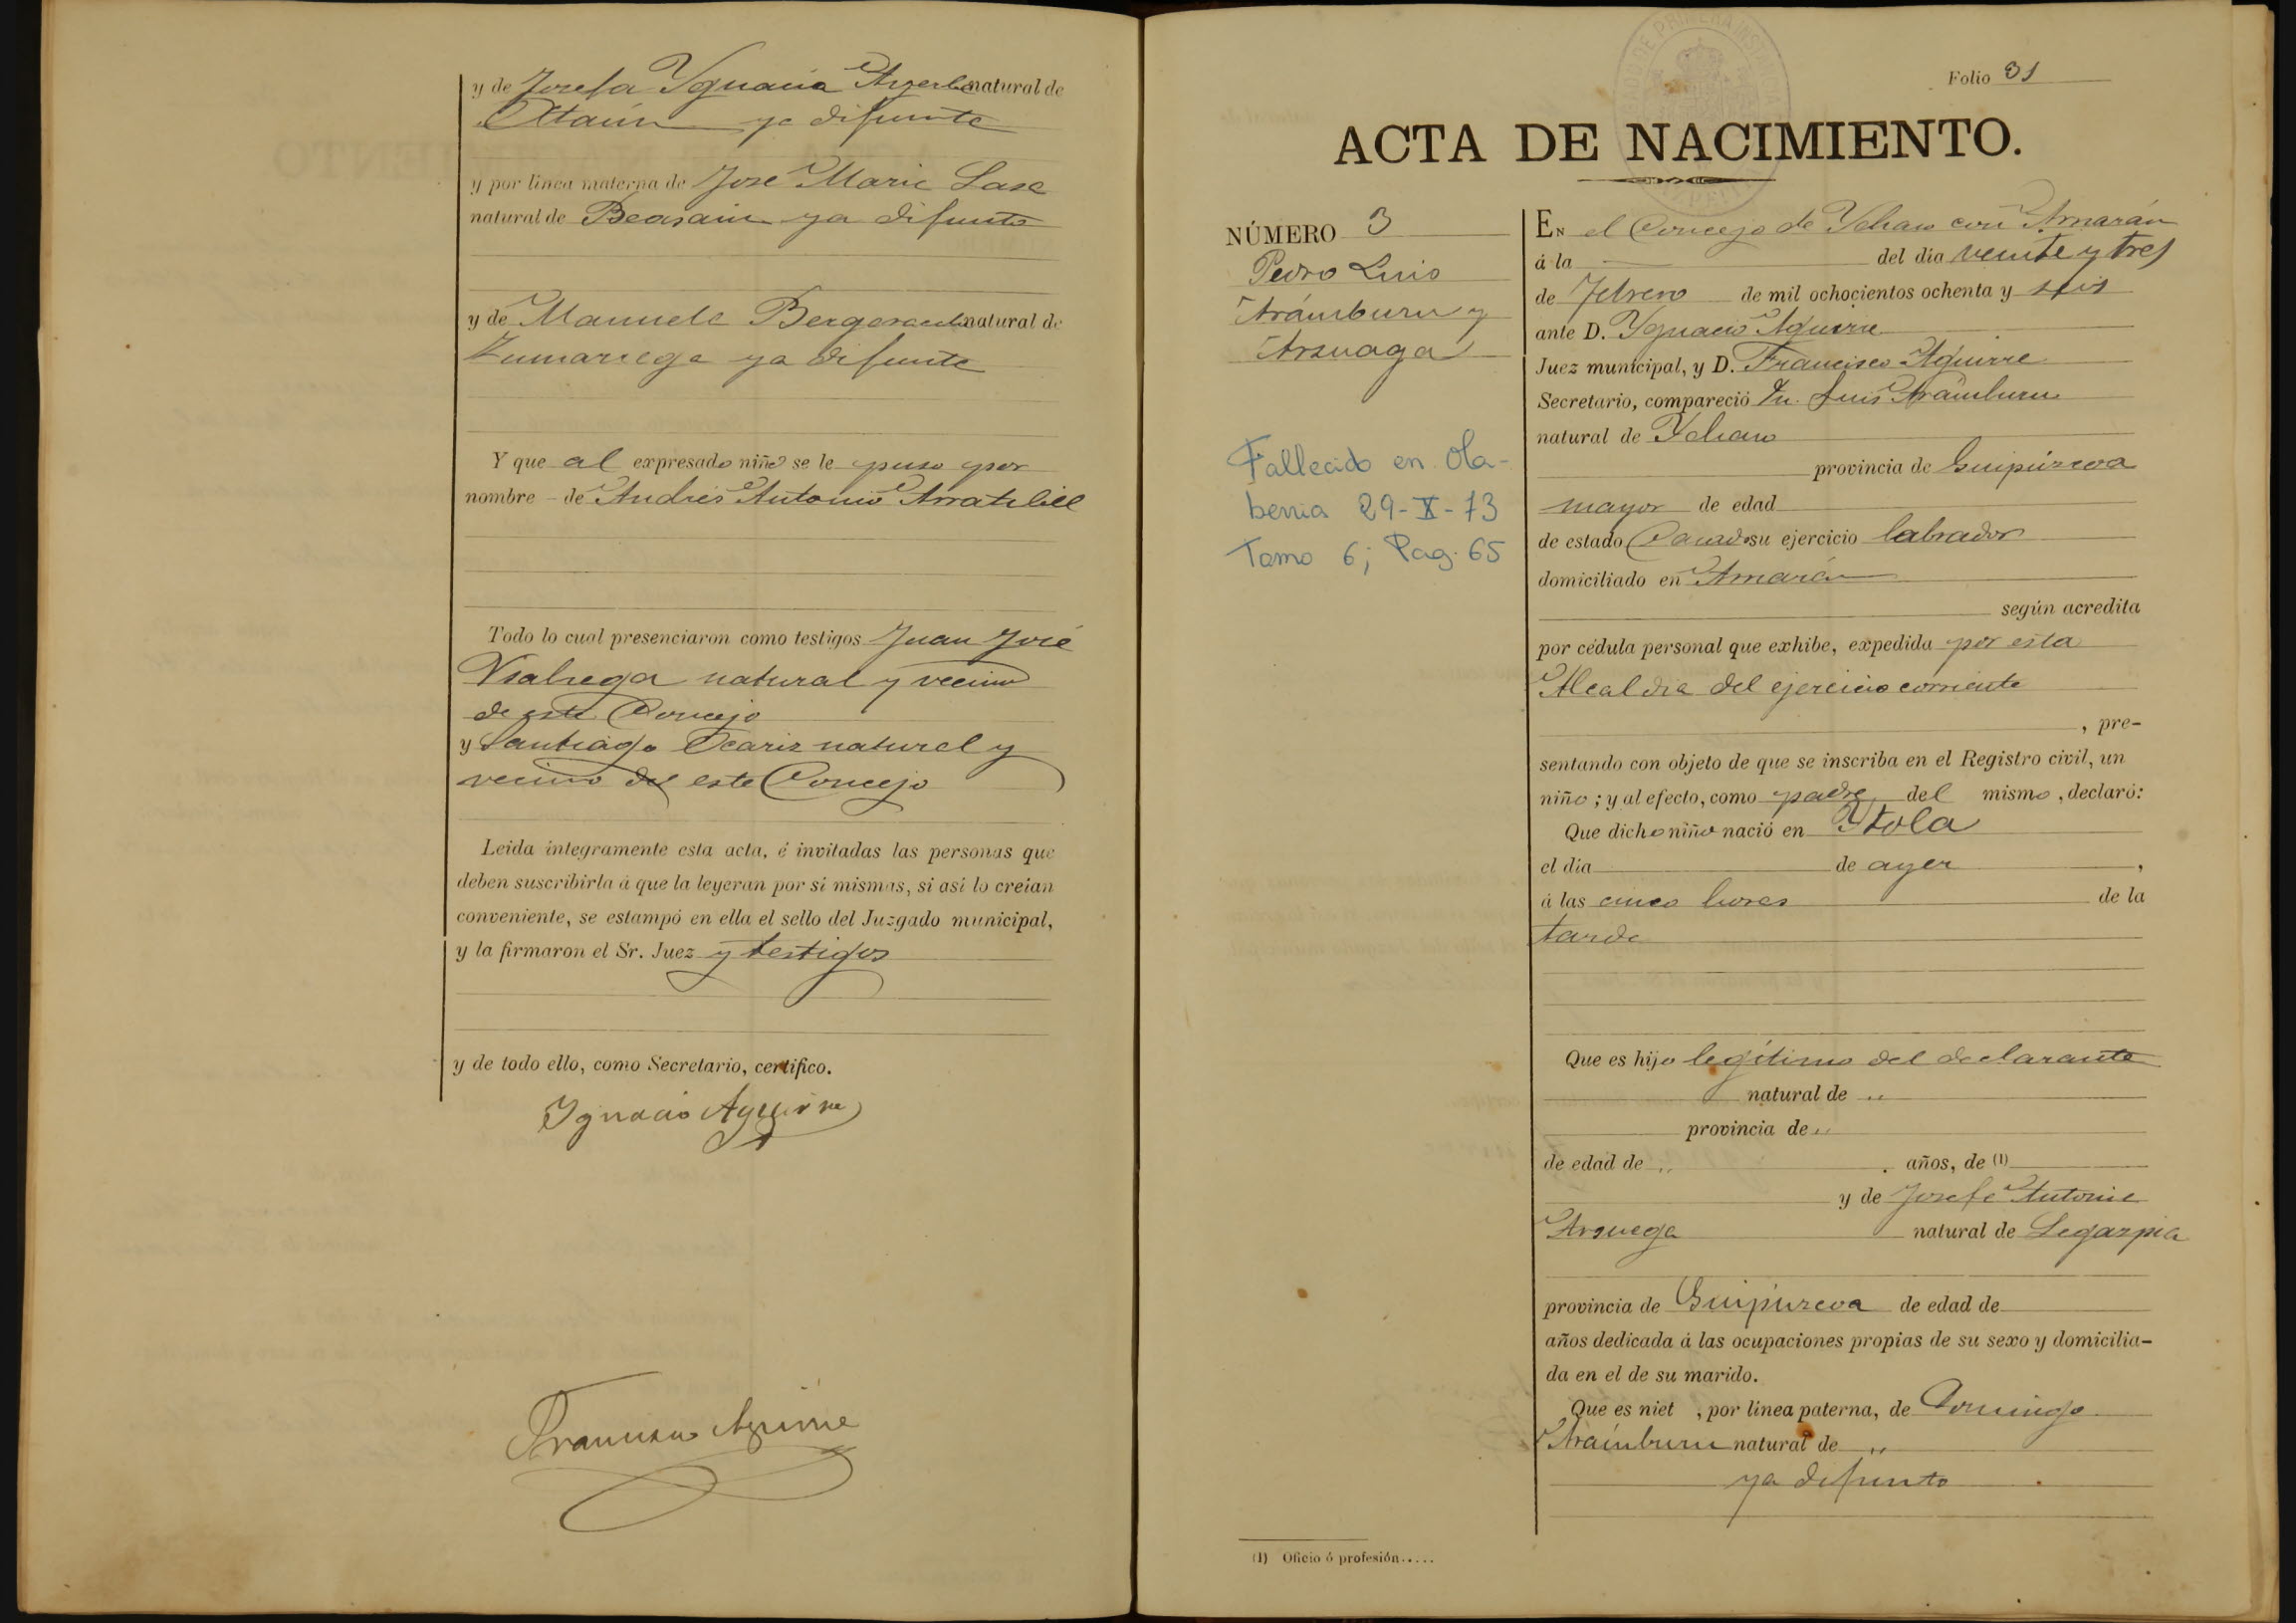 y de Josefa Ygnacia Ayerbe natural de
Ataún ya difunta
y por línea materna de José Maria Lasa
natural de Beasain ya difunto
y de Manuela natural de
Zumarraga ya difunta
Y que al expresado niño se le puso por
nombre - de Andrés Antonio Arratibel
Todo lo cual presenciaron como testigos Juan José
natural y vecino
de este Concejo
y Santiago Ocariz natural y
vecino de este Concejo
Leida íntegramente esta acta, é invitadas las personas que
deben suscribirla á que la leyeran por sí mismas, si así lo creían
conveniente, se estampó en ella el sello del Juzgado municipal,
y la firmaron el Sr. Juez y testigos
y de todo ello, como Secretario, certifico.
Ygnacio Aguirre
Francisco Aguirre
Folio 31
ACTA DE NACIMIENTO.
NÚMERO 3
Pedro Luis
Arámburu y
Arzuaga
Fallecido en Ola-
berria 29-X-73
Tomo 6; Pag. 65
EN el Concejo de Ychaso con Arriarán
á la del dia veinte y tres
de Febrero de mil ochocientos ochenta y seis
ante D. Ygnacio Aguirre
Juez municipal, y D. Francisco Aguirre
Secretario, compareció Dn. Luis Arámburu
natural de Ychaso
provincia de Guipúzcoa
mayor de edad
de estado Casado su ejercicio labrador
domiciliado en Arriarán
según acredita
por cédula personal que exhibe, expedida por esta
Alcaldia del ejercicio corriente
, pre-
sentando con objeto de que se inscriba en el Registro civil, un
niño; y al efecto, como padre del mismo, declaró:
Que dicho niño nació en Ytola
el dia de ayer ,
á las cinco horas de la
tarde
Que es hijo legítimo del declarante
natural de ,,
provincia de ,,
de edad de ,, . años, de (1)
y de Josefa Antonia
Arzuaga natural de Legazpia
provincia de Guipúzcoa de edad de
años dedicada á las ocupaciones propias de su sexo y domicilia-
da en el de su marido.
Que es niet , por línea paterna, de Domingo
Arámburu natural de ,,
ya difunto
(1) Oficio ó profesión.....